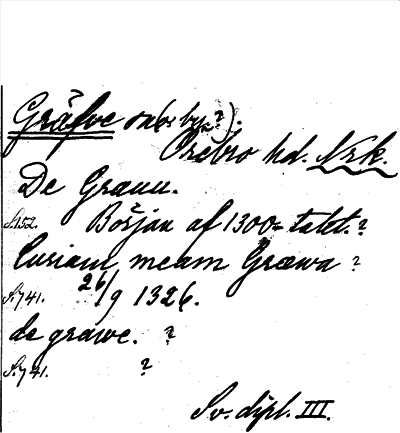 Gräfve sn (o. by?).
Örebro hd. Nrk.
De Græuu.
S. 152. Början af 1300-talet. ?
Curiam meam Græwa ?
S. 741. 26/9 1326.
de grawe. ?
S. 741. ?
Sv. dipl. III.